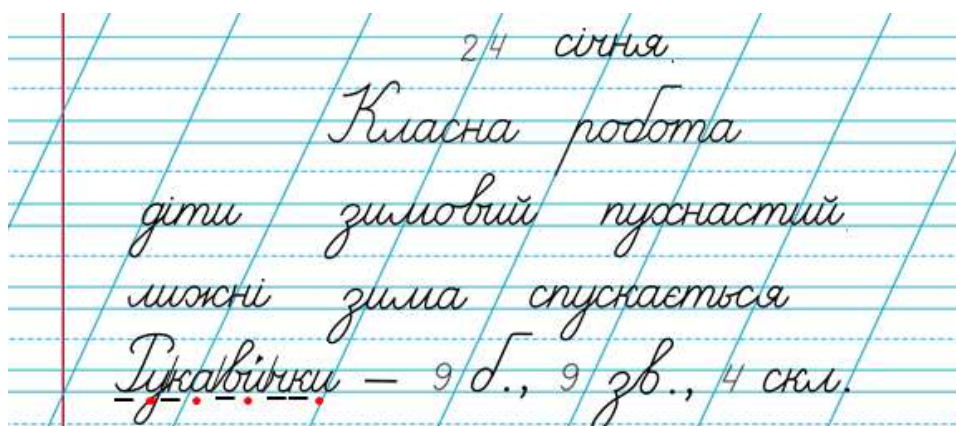 24 січня.
Класна робота
діти зимовий пухнастий.
лижні зима спускається
Рукавички – 9 б., 9 зв., 4 скл.